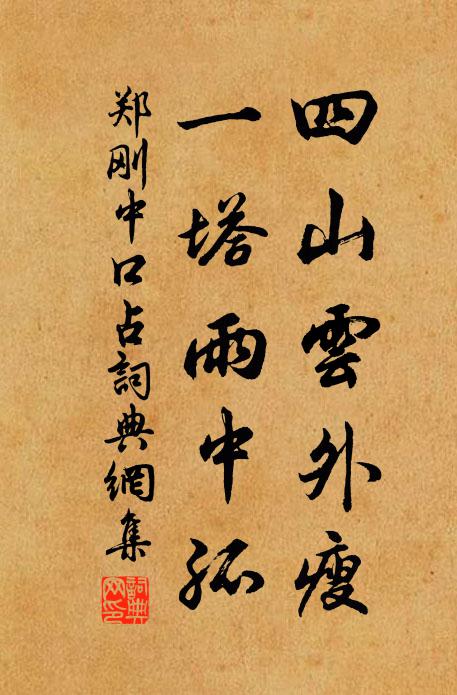 四山雲外瘦
一塔雨中孤
郑刚中口占詞典網集
詞典网印